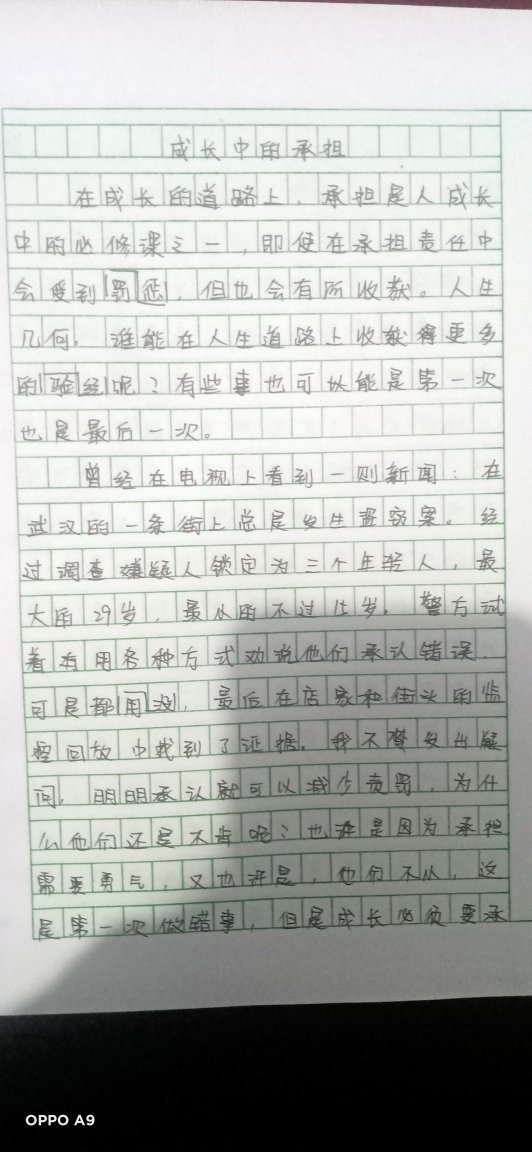 成长中的承担
在成长的道路上，承担是人成长
中的必修课之一，即使在承担责任中
会受到罚惩，但也会有所收获。人生
几何，谁能在人生道路上收获得更多
的验经呢？有些事也可以能是第一次
也是最后一次。
曾经在电视上看到一则新闻：在
武汉的一条街上总是发生盗窃案。经
过调查嫌疑人锁定为三个年轻人，最
大的29岁，最小的不过15岁。警方试
着有用各种方式劝说他们承认错误，
可是都用没，最后在店家和街头的监
控回放中找到了证据。我不禁发出疑
问，明明承认就可以减少责罚，为什
么他们还是不肯呢？也许是因为承担
需要勇气，又也许是，他们不认，这
是第一次做错事，但是成长必须要承
OPPO A9